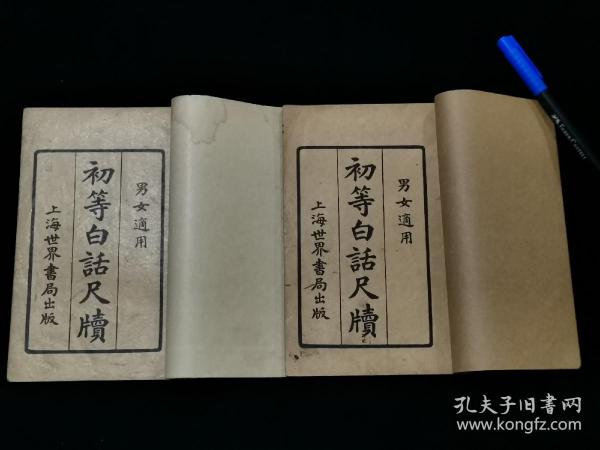 男女適用
初等白話尺牘
上海世界書局出版
男女適用
初等白話尺牘
上海世界書局出版
孔夫子旧书网
www.kongfz.com